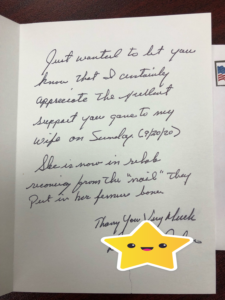 Just wanted to let you
know that I certainly
appreciate the
support you gave to my
wife on Sunday (9/20/20)
She is now in rehab
from the "nail" they
put in her femur bone
Thank You Very Much